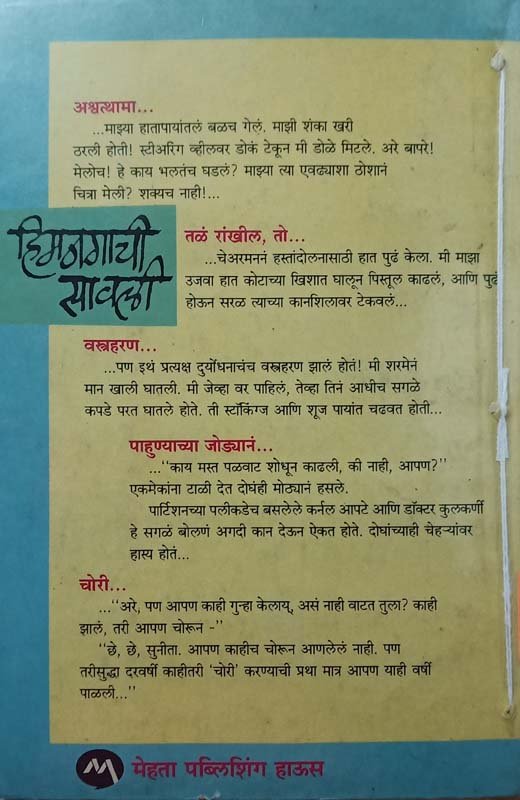 अश्वत्थामा...
...माझ्या हातापायांतलं बळच गेलं. माझी शंका खरी
ठरली होती! स्टीअरिंग व्हीलवर डोकं टेकून मी डोळे मिटले. अरे बापरे!
मेलोच! हे काय भलतंच घडलं? माझ्या त्या एवढ्याशा ठोशानं
चित्रा मेली? शक्यच नाही!...
हिमनगाची
सावली
तळं राखील, तो...
...चेअरमननं हस्तांदोलनासाठी हात पुढं केला. मी माझा
उजवा हात कोटाच्या खिशात घालून पिस्तूल काढलं, आणि पुढं
होऊन सरळ त्याच्या कानशिलावर टेकवलं...
वस्त्रहरण...
...पण इथं प्रत्यक्ष दुर्योधनाचंच वस्त्रहरण झालं होतं! मी शरमेनं
मान खाली घातली. मी जेव्हा वर पाहिलं, तेव्हा तिनं आधीच सगळे
कपडे परत घातले होते. ती स्टॉकिंग्ज आणि शूज पायांत चढवत होती...
पाहुण्याच्या जोड्यानं...
...‘‘काय मस्त पळवाट शोधून काढली, की नाही, आपण?’’
एकमेकांना टाळी देत दोघंही मोठ्यानं हसले.
पार्टिशनच्या पलीकडेच बसलेले कर्नल आपटे आणि डॉक्टर कुलकर्णी
हे सगळं बोलणं अगदी कान देऊन ऐकत होते. दोघांच्याही चेहऱ्यांवर
हास्य होतं...
चोरी...
...‘‘अरे, पण आपण काही गुन्हा केलाय्, असं नाही वाटत तुला? काही
झालं, तरी आपण चोरून -’’
‘‘छे, छे, सुनीता. आपण काहीच चोरून आणलेलं नाही. पण
तरीसुद्धा दरवर्षी काहीतरी ‘चोरी’ करण्याची प्रथा मात्र आपण याही वर्षी
पाळली...’’
मेहता पब्लिशिंग हाऊस